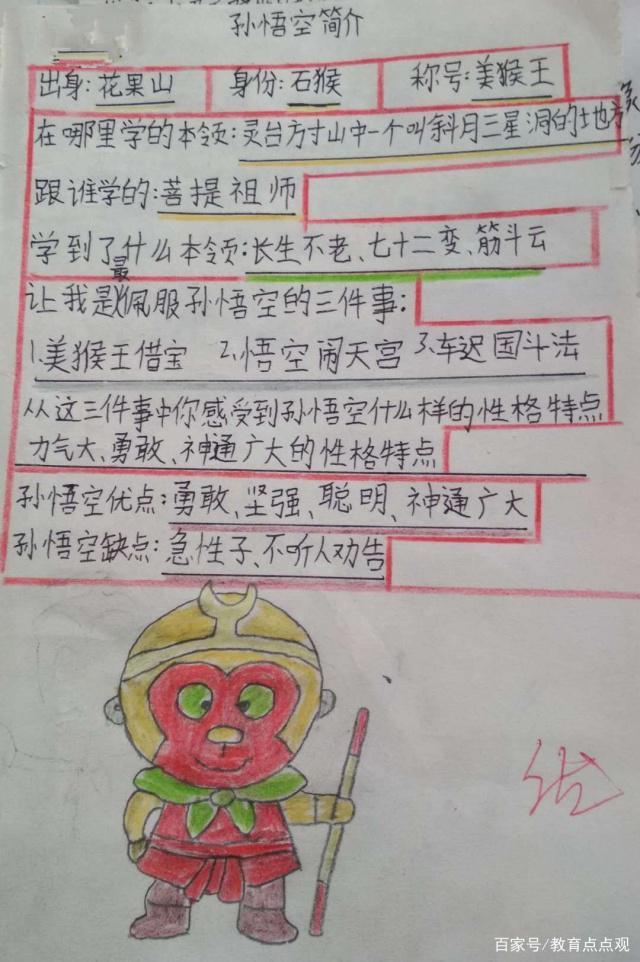 孙悟空简介
出身:花果山 身份:石猴 称号:美猴王
在哪里学的本领:灵台方寸山中一个叫斜月三星洞的地方
跟谁学的:菩提祖师
学到了什么本领:长生不老、七十二变、筋斗云
让我最佩服孙悟空的三件事:
1.美猴王借宝 2.悟空闹天宫 3.车迟国斗法
从这三件事中你感受到孙悟空什么样的性格特点
力气大、勇敢、神通广大的性格特点
孙悟空优点:勇敢、坚强、聪明、神通广大
孙悟空缺点:急性子、不听人劝告
百家号/教育点点观